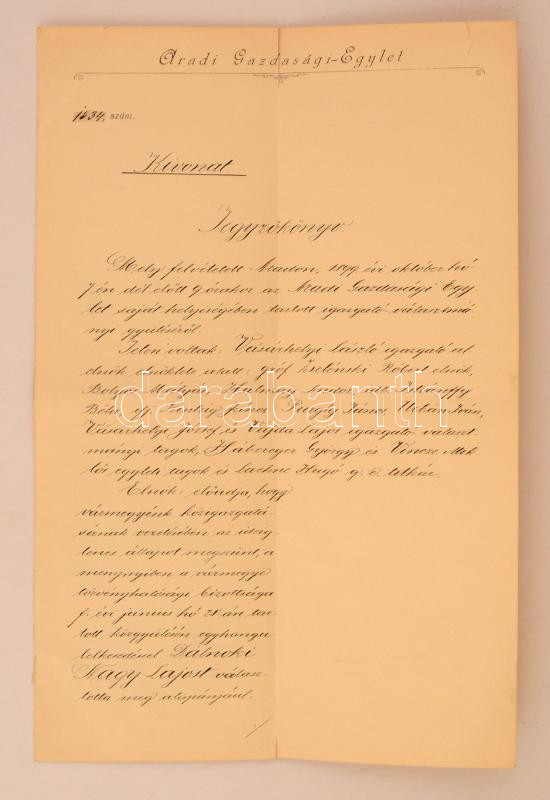 Aradi Gazdasági-Egylet
1534. szám.
Kivonat
Jegyzőkönyv.
Mely felvétetett Aradon, 1899 évi október hó
7-én dél előtt 9 órakor az Aradi Gazdasági Egy-
let saját helyiségében tartott igazgató-választmá-
nyi gyüléséről.
Jelen voltak: Vásárhelyi László igazgató al
elnök elnöklete alatt: gróf Zselénski Róbert elnök,
Béla, ifj. János, János, Urbán Iván,
Vásárhelyi József és Vajda Lajos igazgató választ
mányi tagok, Habereger György és Vincze Mik-
lós egyleti tagok és Lachne Hugó g. e. titkár.
Elnök: előadja, hogy
vármegyénk közigazgatá-
sának vezetésében az ideig-
lenes állapot megszünt, a
mennyiben a vármegye
törvényhatósági bizottsága
f. évi junius hó 21-án tar-
tott közgyülésén egyhangu
lelkesedéssel Dálnoki
Nagy Lajost válasz-
totta meg alispánjául.
darabanth